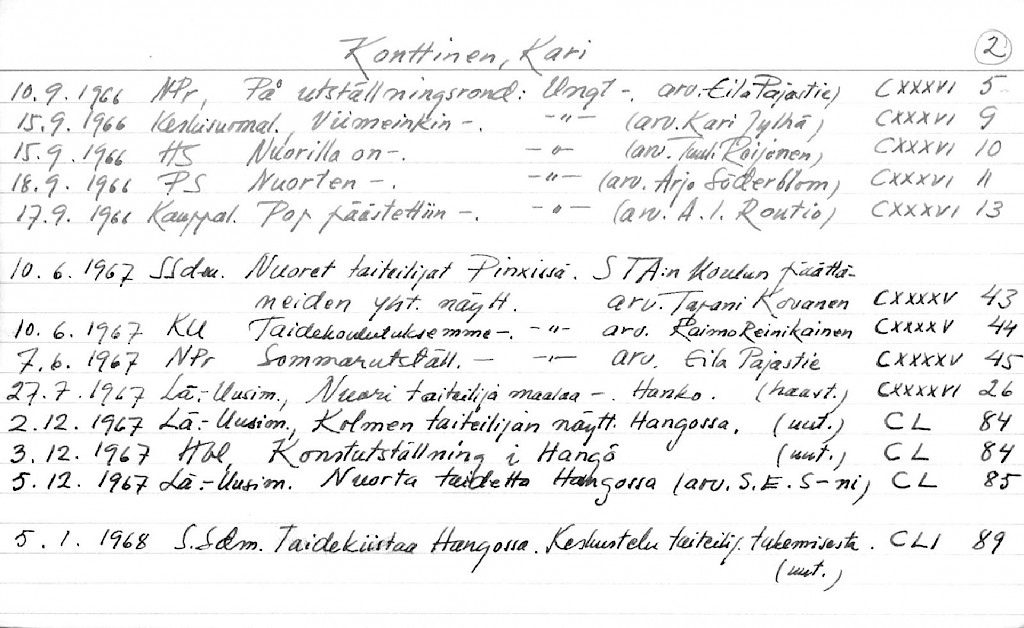 Konttinen, Kari 2
10.9.1966 NPr, På utställningsrond: Ungt -. arv. Eila Pajastie) CXXXVI 5
15.9.1966 Keskisuomal., Viimeinkin -. -"- (arv. Kari Jylhä) CXXXVI 9
15.9.1966 HS Nuorilla on -. -"- (arv. Tuuli Reijonen) CXXXVI 10
18.9.1966 PS Nuorten -. -"- (arv. Arjo Söderblom) CXXXVI 11
17.9.1966 Kauppal. Pop päästettiin -. -"- (arv. A.I. Routio) CXXXVI 13
10.6.1967 SSdm. Nuoret taiteilijat Pinxissä. STA:n Koulun päättä-
neiden yht. näytt. arv. Tapani Kovanen CXXXXV 43
10.6.1967 KU Taidekoulutuksemme -. -"- arv. Raimo Reinikainen CXXXXV 44
7.6.1967 NPr Sommarutställ. - -"- arv. Eila Pajastie CXXXXV 45
27.7.1967 Lä.-Uusim., Nuori taiteilija maalaa -. Hanko. (haast.) CXXXXVI 26
2.12.1967 Lä.-Uusim., Kolmen taiteilijan näytt. Hangossa. (uut.) CL 84
3.12.1967 Hbl, Konstutställning i Hangö (uut.) CL 84
5.12.1967 Lä.-Uusim. Nuorta taidetta Hangossa (arv. S.E.S-ni) CL 85
5.1.1968 S.Sdm. Taidekiistaa Hangossa. Keskustelu taiteilij. tukemisesta. CLI 89
(uut.)